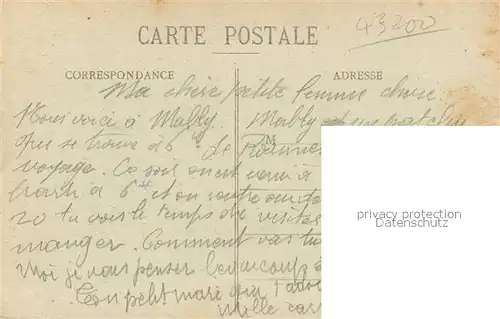 43200
CARTE POSTALE
CORRESPONDANCE
ADRESSE
Ma chère petite femme chérie
Nous voici à Mably. Mably est un
qui se trouve à 6 de
M
voyage. Ce soir on est venu à
à 6 H et on rentre
20 tu vois le temps de visiter
manger. Comment vas tu
Moi je vous penser beaucoup à
Ton petit mari qui t'adore
mille
privacy protection
Datenschutz